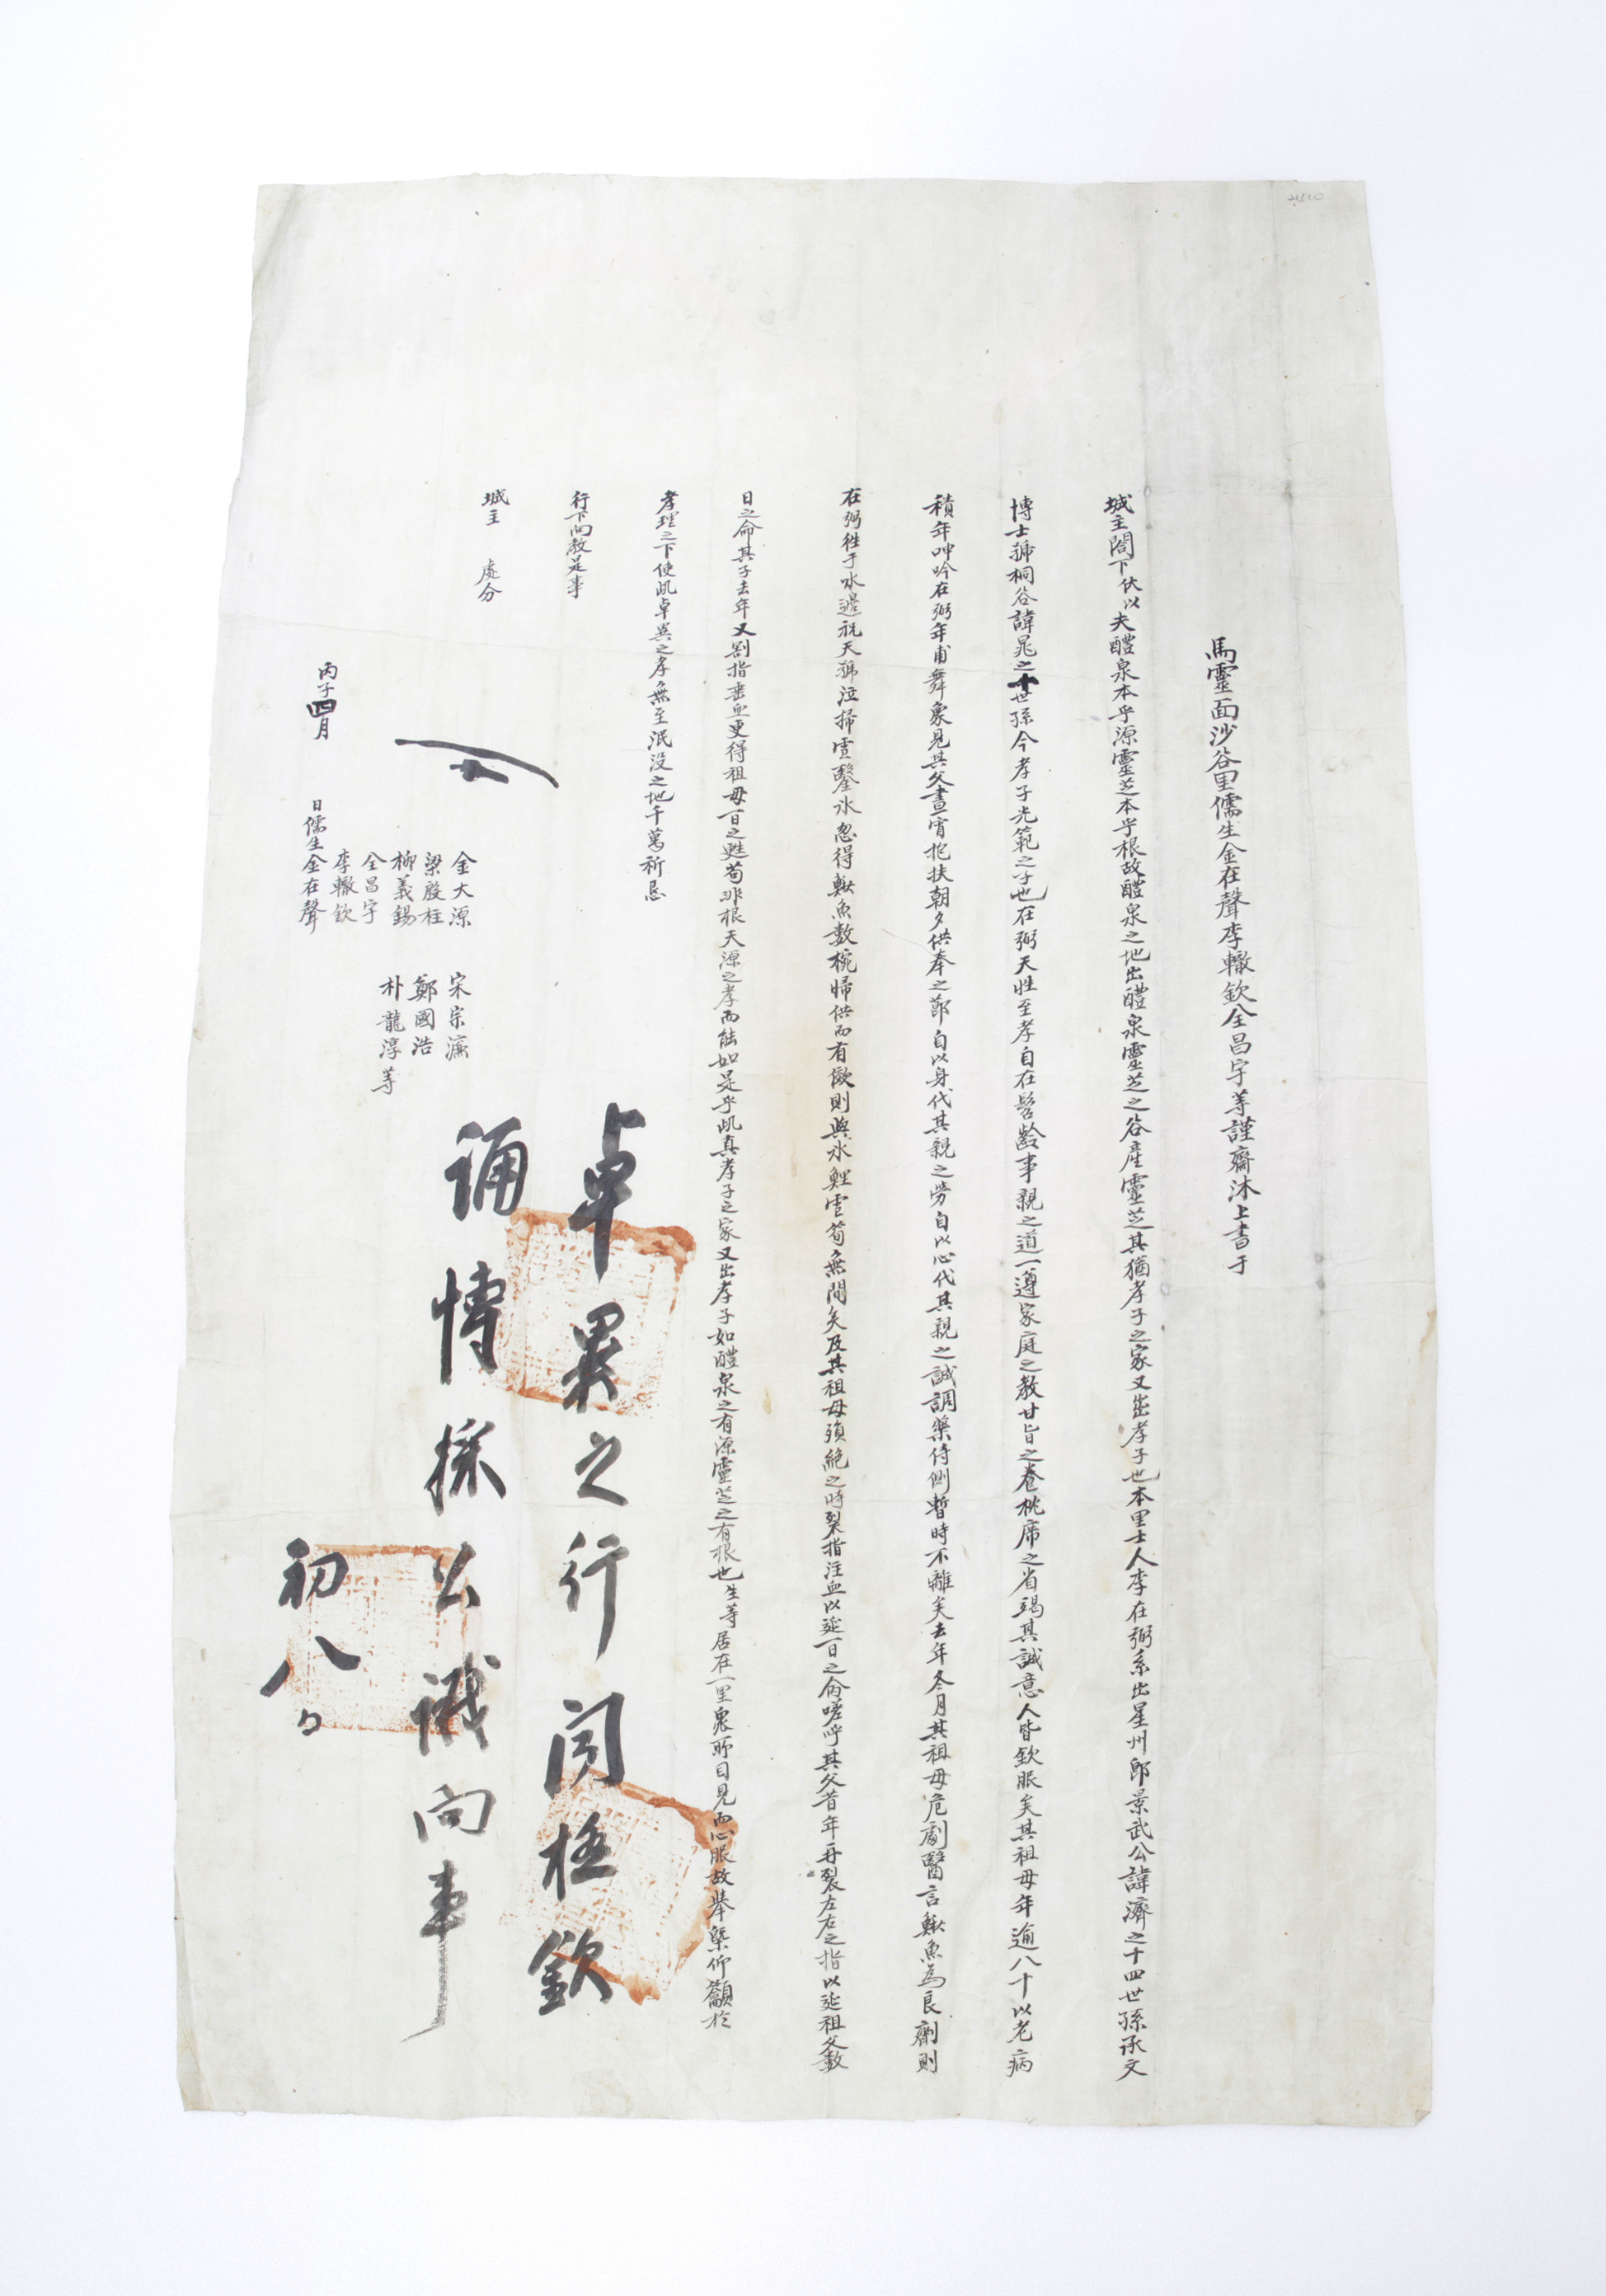 馬靈面沙谷里儒生金在聲李轍欽全昌宇等謹齋沐上書于
城主閤下伏以夫醴泉本乎源靈芝本乎根故醴泉之地出醴泉靈芝之谷産靈芝其猶孝子之家又出孝子也本里士人李在弼系出星州卽景武公諱濟之十四世孫承文
博士號桐谷諱晁之十世孫今孝子光範之子也在弼天性至孝自在髫齡事親之道一遵家庭之教甘旨之養枕席之省竭其誠意人皆欽服矣其祖母年逾八十以老病
積年呻吟在弼年甫舞象見其父晝宵抱扶朝夕供奉之節自以身代其親之勞自以心代其親之誠調藥侍側暫時不離矣去年冬月其祖母危劇醫言鰍魚爲良劑則
在弼徃于水邊祝天號泣掃雪鑿氷忽得鰍魚數椀歸供而有傚則與氷鯉雪筍無間矣及其祖母殞絶之時裂指注血以延一日之命嗟呼其父昔年再裂左右之指以延祖父數
日之命其子去年又割指垂血更得祖母一日之甦苟非根天源之孝而能如是乎此眞孝子之家又出孝子如醴泉之有源靈芝之有根也生等居在一里衆所目見而心服故擧槩仰籲於
孝理之下使此卓異之孝無至泯没之地千萬祈恳
行下向教是事
城主 處分
丙子四月 日儒生金在聲
李轍欽
全昌宇
柳義錫 朴龍淳等
梁殷柱 鄭國浩
金大源 宋宗濂
卓異之行聞極欽
誦博採公議向事
初八日